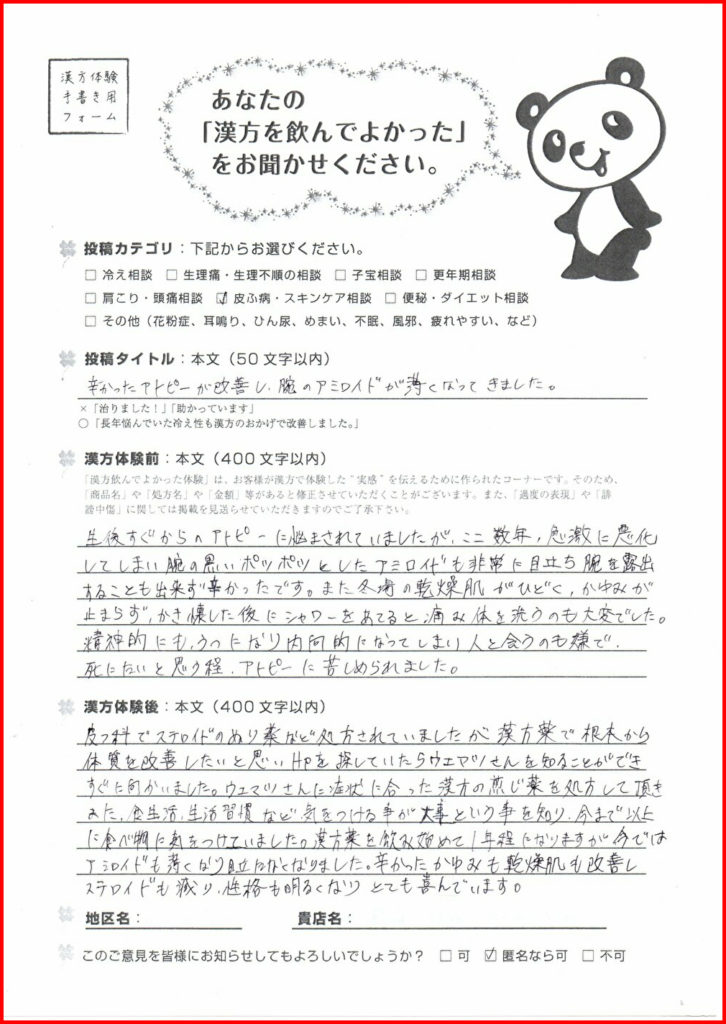 漢方体験
手書き用
フォーム
あなたの
「漢方を飲んでよかった」
をお聞かせください。
投稿カテゴリ：下記からお選びください。
□ 冷え相談 □ 生理痛・生理不順の相談 □ 子宝相談 □ 更年期相談
□ 肩こり・頭痛相談 ☑ 皮ふ病・スキンケア相談 □ 便秘・ダイエット相談
□ その他（花粉症、耳鳴り、ひん尿、めまい、不眠、風邪、疲れやすい、など）
投稿タイトル：本文（50文字以内）
辛かったアトピーが改善し、腕のアミロイドが薄くなってきました。
×「治りました！」「助かっています」
○「長年悩んでいた冷え性も漢方のおかげで改善しました。」
漢方体験前：本文（400文字以内）
「漢方飲んでよかった体験」は、お客様が漢方で体験した“実感”を伝えるために作られたコーナーです。そのため、
「商品名」や「処方名」や「金額」等があると修正させていただくことがございます。また、「過度の表現」や「誹
謗中傷」に関しては掲載を見送らせていただきますのでご了承下さい。
生後すぐからアトピーに悩まされていましたが、ここ数年、急激に悪化
してしまい腕の黒いポツポツとしたアミロイドも非常に目立ち腕を露出
することも出来ず辛かったです。また冬場の乾燥肌がひどく、かゆみが
止まらず、かき壊した後にシャワーをあてると痛み体を洗うのも大変でした。
精神的にも、うつになり内向的になってしまい人と会うのも嫌で、
死にたいと思う程、アトピーに苦しめられました。
漢方体験後：本文（400文字以内）
皮フ科でステロイドのぬり薬など処方されていましたが漢方薬で根本から
体質を改善したいと思いHPを探していたらウエマツさんを知ることができ
すぐに向かいました。ウエマツさんに症状に合った漢方の煎じ薬を処方して頂き
また、食生活、生活習慣など気をつける事が大事という事を知り、今まで以上
に食べ物に気をつけていました。漢方薬を飲み始めて1年程になりますが今では
アミロイドも薄くなり目立たなくなりました。辛かったかゆみも乾燥肌も改善し
ステロイドも減り、性格も明るくなりとても喜んでいます。
地区名： 貴店名：
このご意見を皆様にお知らせしてもよろしいでしょうか？ □ 可 ☑ 匿名なら可 □ 不可